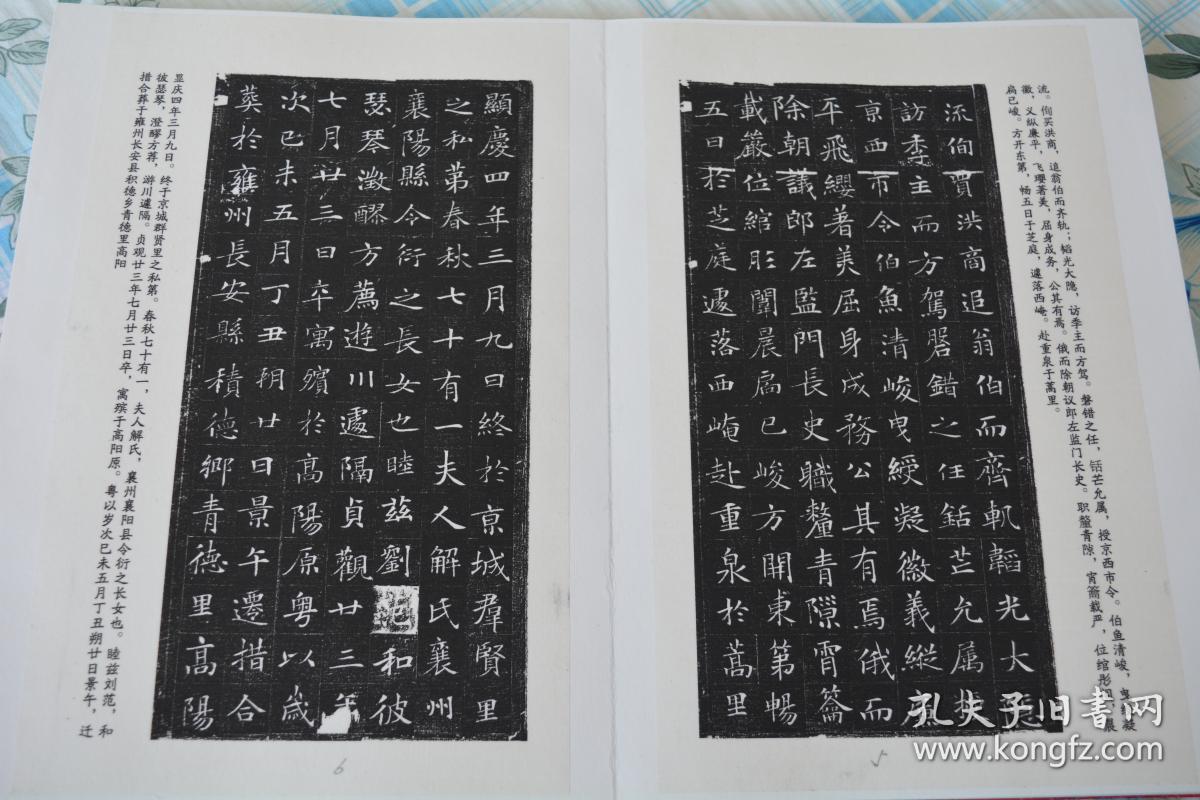 流。徇买洪商，追翁伯而齐轨；韬光大隐，访季主而方驾。磐错之任，铦芒允属，授京西市令。伯鱼清峻，曳绶凝
徽，义纵廉平，飞璎著美，屈身成务，公其有焉。俄而除朝议郎左监门长史。职釐青隙，宵籥载严，位绾彤晨
扃已峻。方开东第，畅五日于芝庭，遽落西崦。赴重泉于萬里。
流徇買洪商追翁伯而齊軌韜光大
訪季主而方駕磐錯之任銛芒允属授
京西市令伯魚清峻曳綬凝徽義縱廉
平飛纓著美屈身成務公其有焉俄而
除朝議郎左監門長史職釐青隙霄籥
載嚴位綰彤闈晨扃已峻方開東第暢
五日於芝庭遽落西崦赴重泉於蒿里
5
顯慶四年三月九日終於京城羣賢里
之私第春秋七十有一夫人解氏襄州
襄陽縣令衍之長女也睦兹劉范和彼
瑟琴澂醪方薦遊川遽隔貞觀廿三年
七月廿三日卒寓殯於高陽原粤以歲
次己未五月丁丑朔廿日景午遷措合
葬於雍州長安縣積德鄉青德里高陽
显庆四年三月九日。终于京城群贤里之私第。春秋七十有一，夫人解氏，襄州襄阳县令衍之长女也。睦兹刘范，和
彼瑟琴，澄醪方荐，游川遽隔。贞观廿三年七月廿三日卒，寓殡于高阳原。粤以岁次己未五月丁丑朔廿日景午，迁
措合葬于雍州长安县积德乡青德里高阳
6
孔夫子旧书网
www.kongfz.com